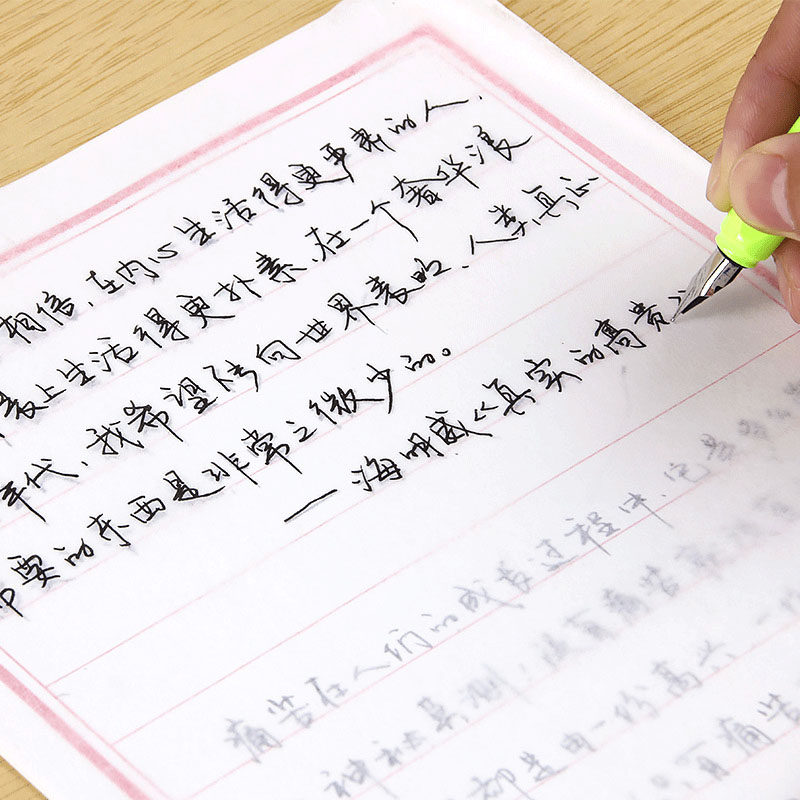 相信，在内心生活得更严肃的人，
表上生活得更朴素，在一个奢华浪
年代，我希望能向世界表明，人类真正
要的东西是非常之微少的。
—海明威《真实的高贵
痛苦在人们的成长过程中，它
神秘莫测，没有痛苦
都是由一份高兴，一份
有痛苦